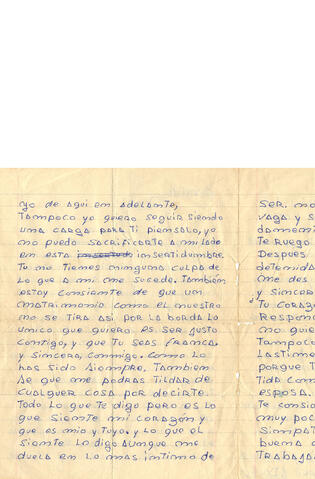 yo de aqui em adelamte,
Tampoco yo quiero seguir siendo
uma carga para Ti piemsalo, yo
mo puedo sacrificarte a mi lado
em esta imsertidumbre.
Tu mo Tiemes mimguma culpa de
lo que a mi me sucede. Tambiém
estoy comsiemte de que um
matrimomio como el muestro
mo se Tira asi por la borda lo
umico que quiero es ser justo
comtigo, y que Tu seas framca,
y simcera, commigo. como lo
has sido siempre. Tambiem
se que me podras Tildar de
cualquer cosa por decirte.
Todo lo que Te digo pero es lo
que siemte mi corazóm y
que es mio y Tuyo. y lo que el
siemte lo digo aumque me
duela em lo mas imtimo de
ser. mo
vaga y s
Te ruego
Despues
detemida
me des
y simcer
Tu coraz
Respom
mo quie
Tampoc
Lastime
porque T
Tida com
esposa.
Te comsi
muy poc
simpat
buema c
Trabaja